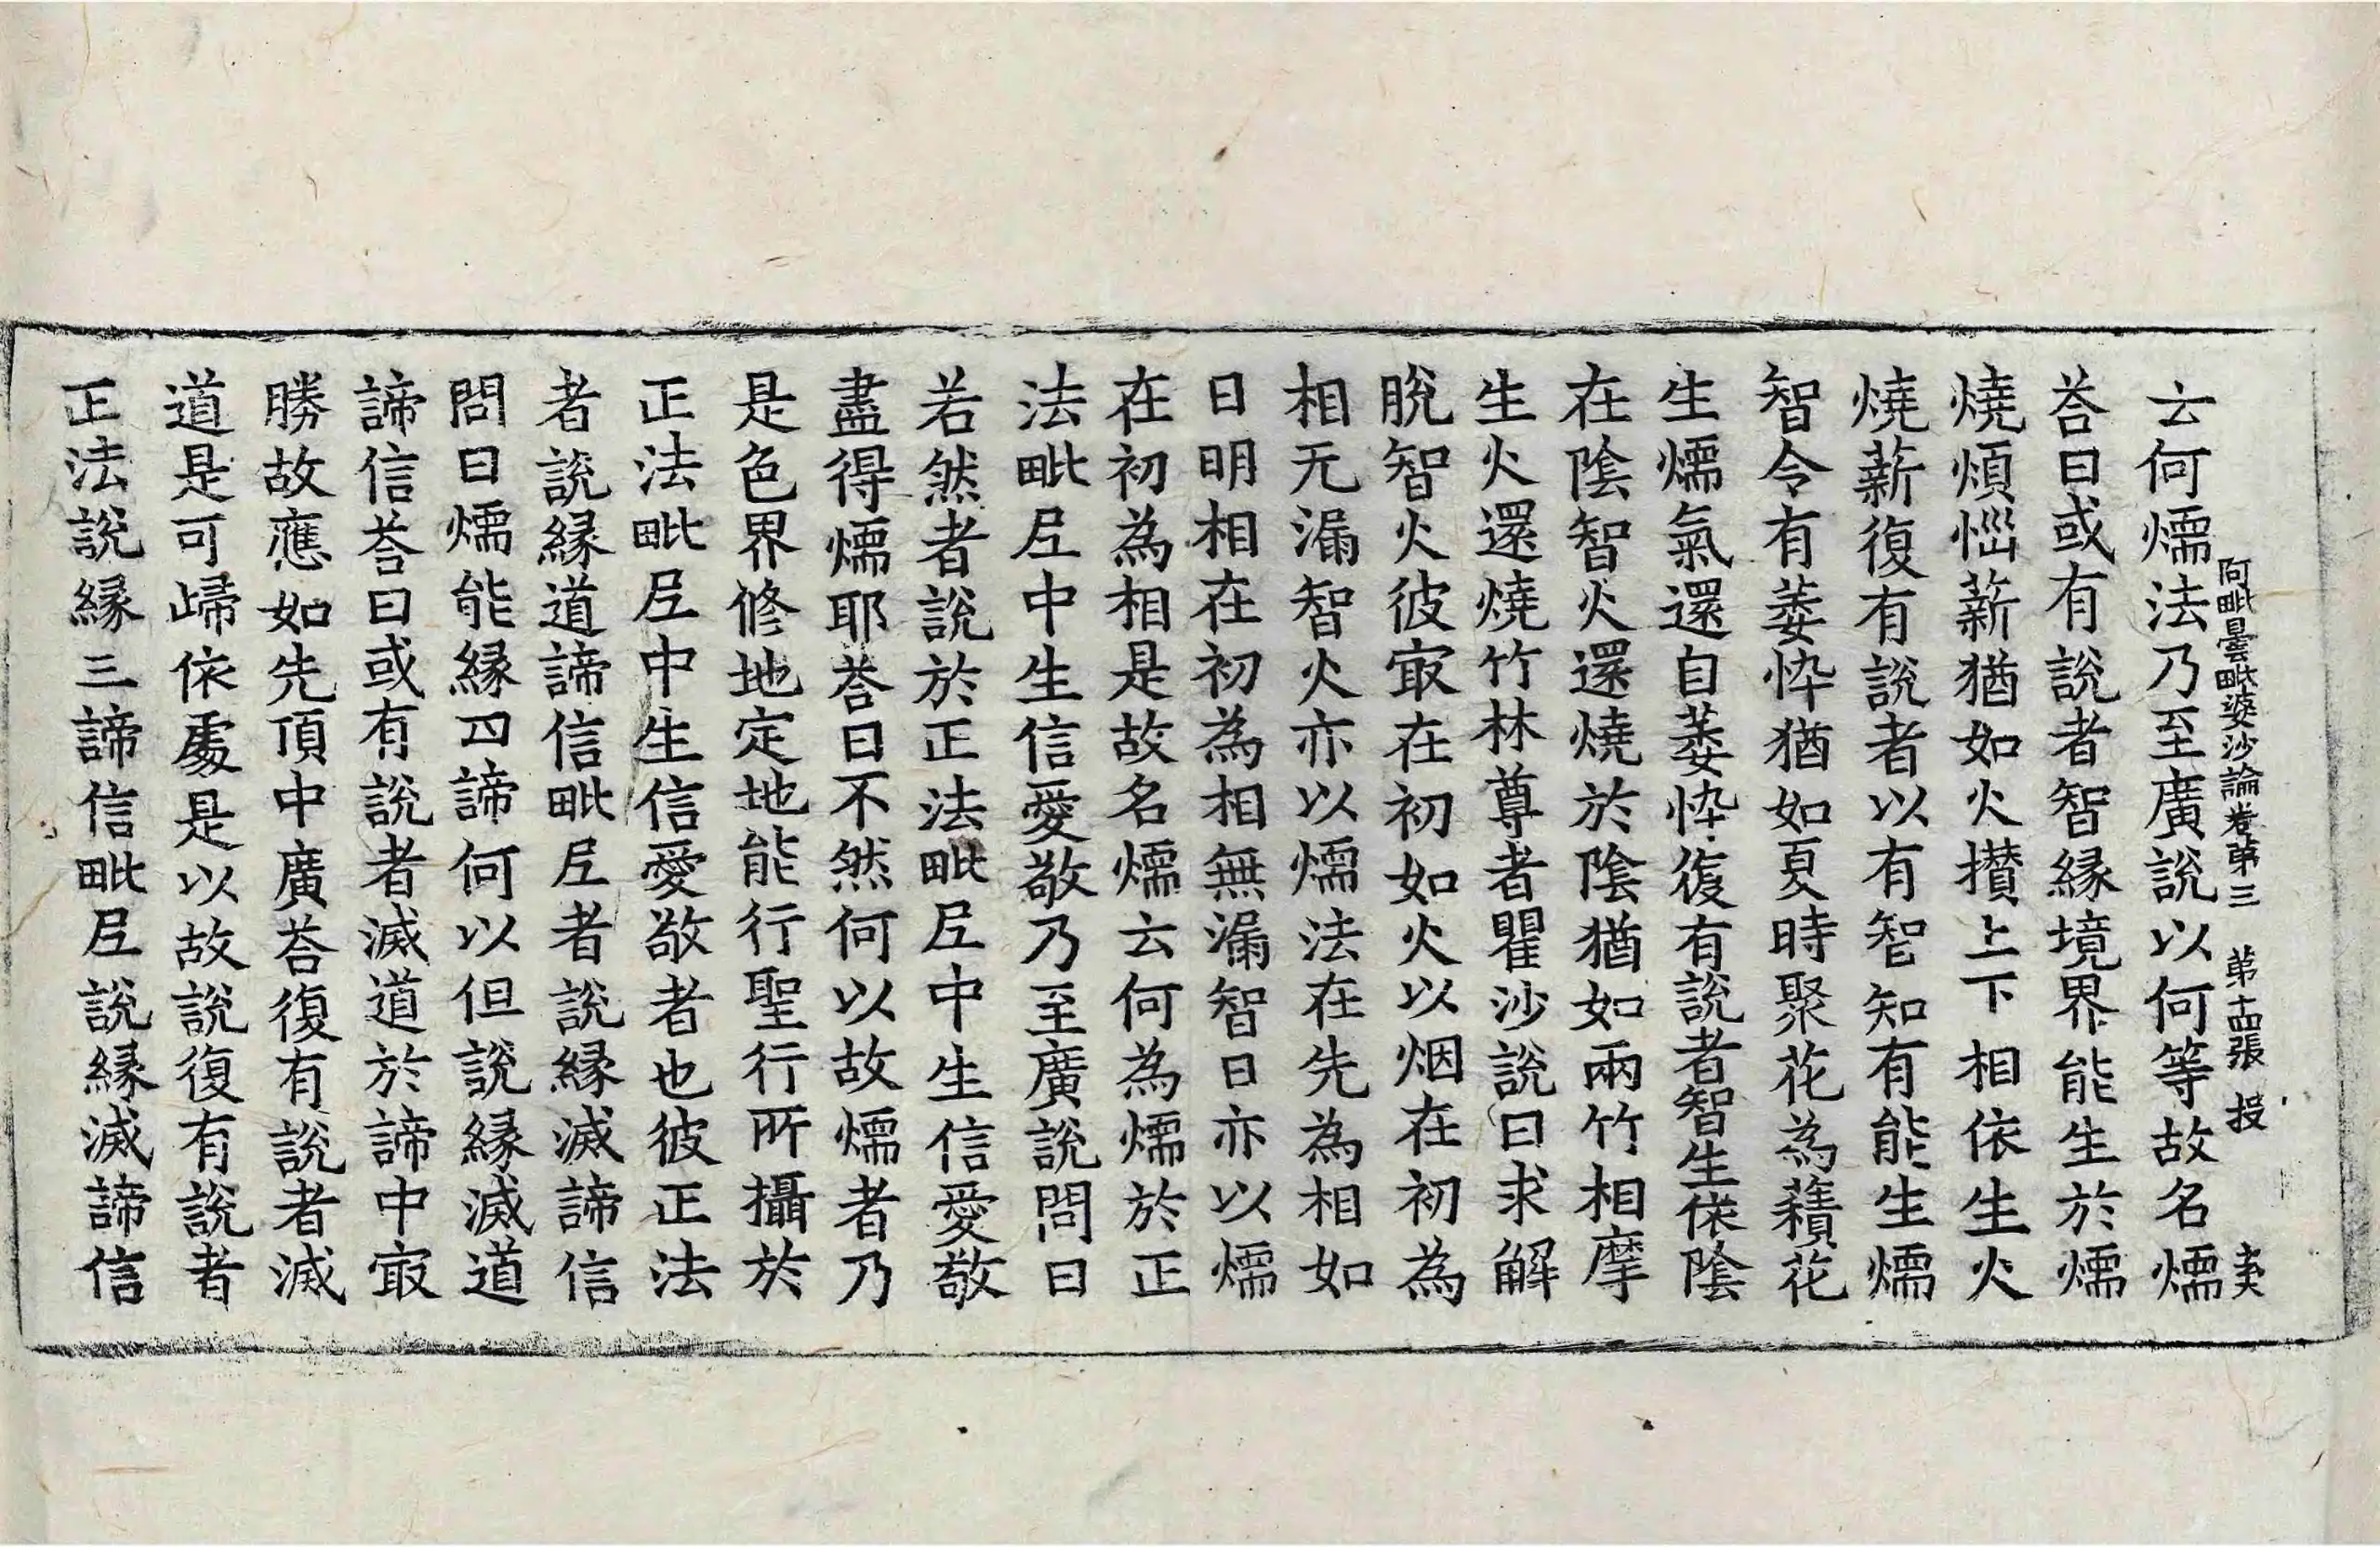 阿毗曇毗婆沙論卷第三　第十四張　投
云何燸法乃至廣說以何等故名燸
荅曰或有說者智緣境界能生於燸
燒煩惱薪猶如火攅上下相依生火
燒薪復有說者以有智知有能生燸
智令有萎悴猶如夏時聚花為𧂐花
生燸氣還自萎悴復有說者智生依陰
在陰智火還燒於陰猶如兩竹相摩
生火還燒竹林尊者瞿沙說曰求解
脫智火彼㝡在初如火以烟在初為
相无漏智火亦以燸法在先為相如
日明相在初為相無漏智日亦以燸
在初為相是故名燸云何為燸於正
法毗尼中生信愛敬乃至廣說問曰
若然者說於正法毗尼中生信愛敬
盡得燸耶荅曰不然何以故燸者乃
是色界修地定地能行聖行所攝於
正法毗尼中生信愛敬者也彼正法
者說緣道諦信毗尼者說緣滅諦信
問曰燸能緣四諦何以但說緣滅道
諦信荅曰或有說者滅道於諦中㝡
勝故應如先頂中廣荅復有說者滅
道是可歸依處是以故說復有說者
正法說緣三諦信毗尼說緣滅諦信